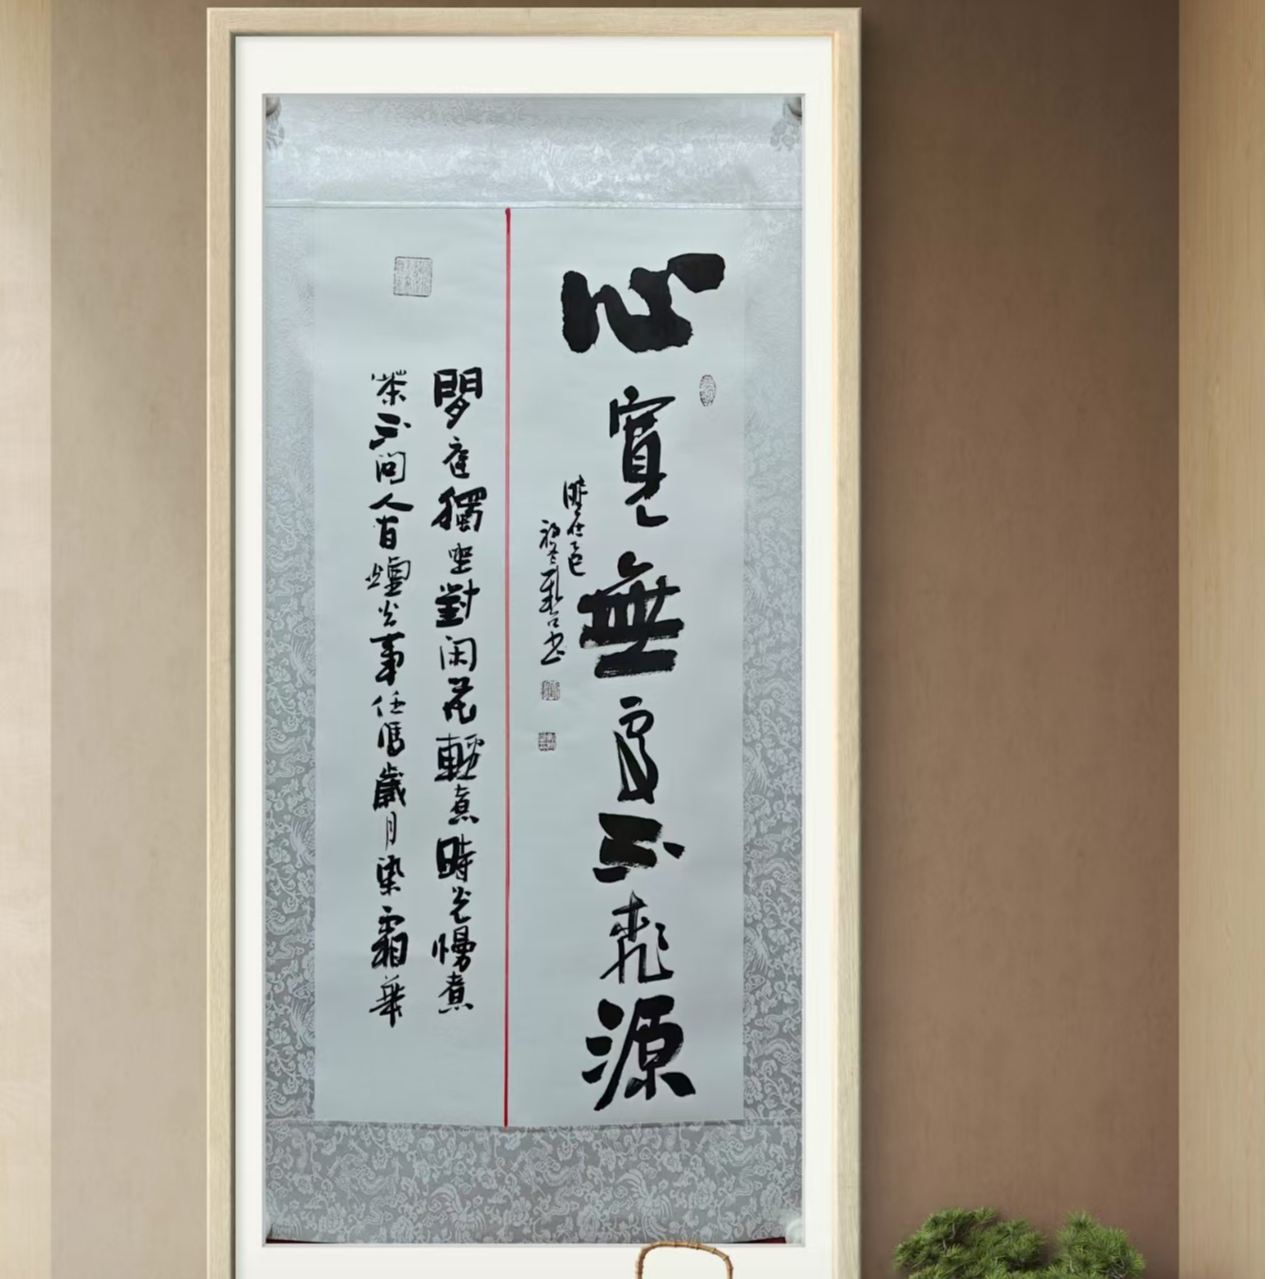 心寬無處不桃源
閒庭獨坐對闲花輕煮時光慢煮
茶不問人間煙火事任憑歲月染霜華